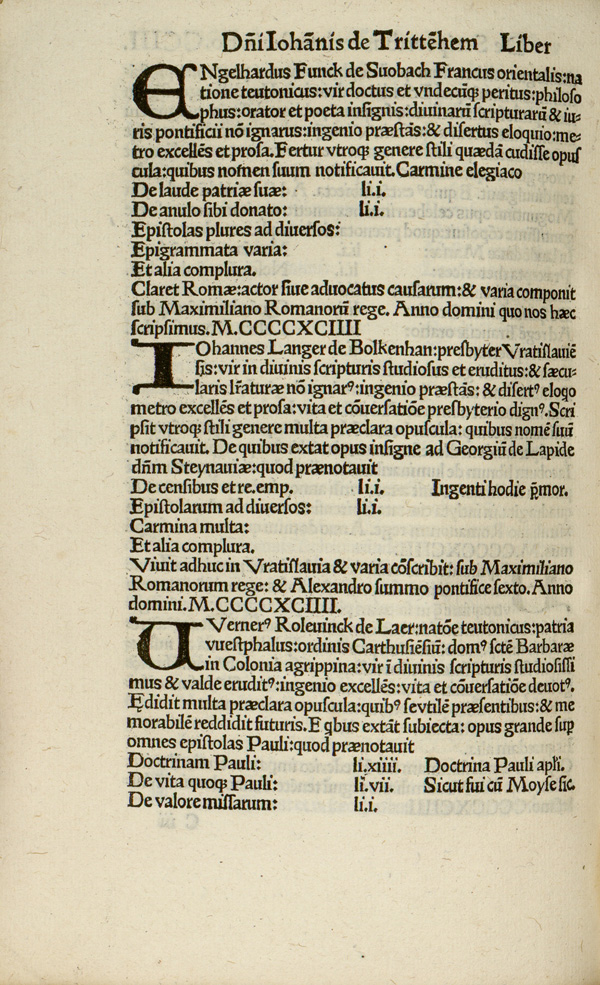 Dn̄i Iohānis de Trittēhem Liber
ENgelhardus Funck de Suobach Francus orientalis:na
tione teutonicus:vir doctus et vndecūqꝫ peritus:philoſo
phus:orator et poeta inſignis:diuinarū ſcripturarū & iu-
ris pontificii nō ignarus:ingenio præſtās:& diſertus eloquio:me-
tro excellēs et proſa.Fertur vtroqꝫ genere ſtili quædā cudiſſe opuſ
cula:quibus nomen ſuum notificauit.Carmine elegiaco
De laude patriæ ſuæ: li.i.
De anulo ſibi donato: li.i.
Epiſtolas plures ad diuerſos:
Epigrammata varia:
Et alia complura.
Claret Romæ:actor ſiue aduocatus cauſarum:& varia componit
ſub Maximiliano Romanorū rege. Anno domini quo nos hæc
ſcripſimus.M.CCCCXCIIII
IOhannes Langer de Bolkenhan:preſbyter Vratiſlauiē
ſis:vir in diuinis ſcripturis ſtudioſus et eruditus:& ſæcu-
laris lr̄aturæ nō ignarꝰ:ingenio præſtās: & diſertꝰ eloqo
metro excellēs et proſa:vita et cōuerſatiōe preſbyterio dignꝰ.Scri
pſit vtroqꝫ ſtili genere multa præclara opuſcula: quibus nomē ſuū
notificauit. De quibus extat opus inſigne ad Georgiū de Lapide
dn̄m Steynauiæ:quod prænotauit
De cenſibus et re.emp. li.i. Ingenti hodie p̄mor.
Epiſtolarum ad diuerſos: li.i.
Carmina multa:
Et alia complura.
Viuit adhuc in Vratiſlauia & varia cōſcribit: ſub Maximiliano
Romanorum rege: & Alexandro ſummo pontifice ſexto. Anno
domini.M.CCCCXCIIII.
VVernerꝰ Roleuinck de Laer:natōe teutonicus:patria
vueſtphalus:ordinis Carthuſiēſiū: domꝰ ſctē Barbaræ
in Colonia agrippina:vir ī diuinis ſcripturis ſtudioſiſſi
mus & valde eruditꝰ:ingenio excellēs:vita et cōuerſatiōe deuotꝰ.
Ędidit multa præclara opuſcula:quibꝰ ſe vtilē præſentibus:& me
morabilē reddidit futuris.E qbus extāt ſubiecta: opus grande ſuꝑ
omnes epiſtolas Pauli:quod prænotauit
Doctrinam Pauli: li.xiiii. Doctrina Pauli apli.
De vita quoqꝫ Pauli: li.vii. Sicut fui cū Moyſe ſic.
De valore miſſarum: li.i.